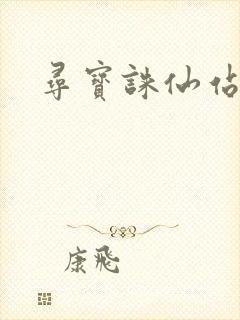 尋寶誅仙佔
康飛